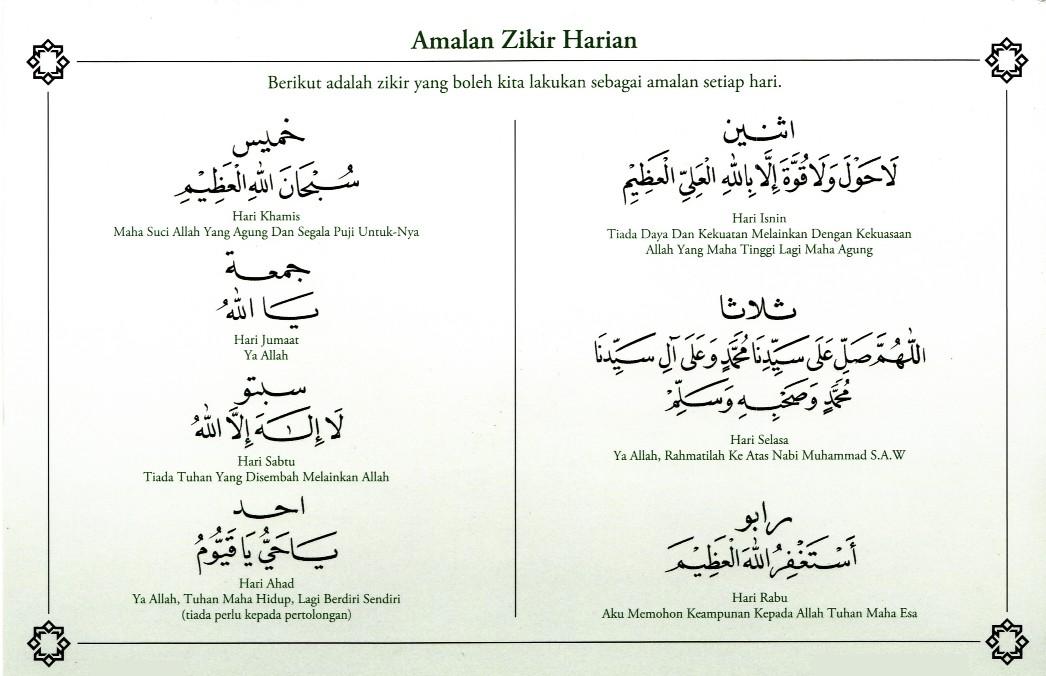 Amalan Zikir Harian
Berikut adalah zikir yang boleh kita lakukan sebagai amalan setiap hari.
اثنين
لَا حَوْلَ وَلَا قُوَّةَ إِلَّا بِاللهِ الْعَلِيِّ الْعَظِيْمِ
Hari Isnin
Tiada Daya Dan Kekuatan Melainkan Dengan Kekuasaan
Allah Yang Maha Tinggi Lagi Maha Agung
ثلاثا
اللّٰهُمَّ صَلِّ عَلَى سَيِّدِنَا مُحَمَّدٍ وَعَلَى آلِ سَيِّدِنَا
مُحَمَّدٍ وَصَحْبِهِ وَسَلِّمْ
Hari Selasa
Ya Allah, Rahmatilah Ke Atas Nabi Muhammad S.A.W
رابو
أَسْتَغْفِرُ اللهَ الْعَظِيْمَ
Hari Rabu
Aku Memohon Keampunan Kepada Allah Tuhan Maha Esa
خميس
سُبْحَانَ اللهِ الْعَظِيْمِ
Hari Khamis
Maha Suci Allah Yang Agung Dan Segala Puji Untuk-Nya
جمعة
يَا اللهُ
Hari Jumaat
Ya Allah
سبتو
لَا إِلٰهَ إِلَّا اللهُ
Hari Sabtu
Tiada Tuhan Yang Disembah Melainkan Allah
احد
يَا حَيُّ يَا قَيُّوْمُ
Hari Ahad
Ya Allah, Tuhan Maha Hidup, Lagi Berdiri Sendiri
(tiada perlu kepada pertolongan)